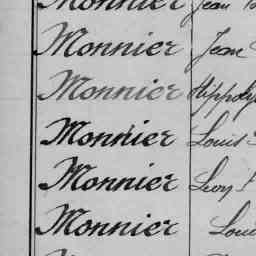 Monnier Jean
Monnier Jean
Monnier Hippoly
Monnier Louis
Monnier Léon
Monnier Loui